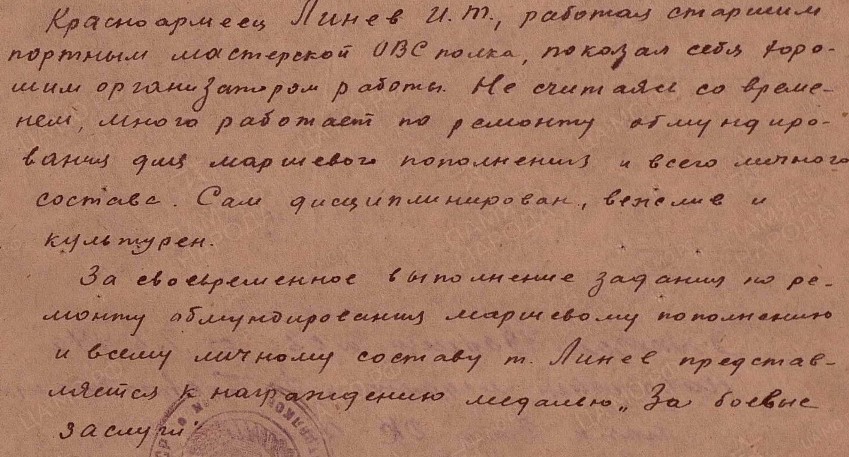 Красноармеец Линев И.Т., работая старшим
портным мастерской ОВС полка, показал себя хоро-
шим организатором работы. Не считаясь со време-
нем, много работает по ремонту обмундиро-
вания для маршевого пополнения и всего личного
состава. Сам дисциплинирован, вежлив и
культурен.
За своевременное выполнение задания по ре-
монту обмундирования маршевому пополнению
и всему личному составу т. Линев представ-
ляется к награждению медалью „За боевые
заслуги".